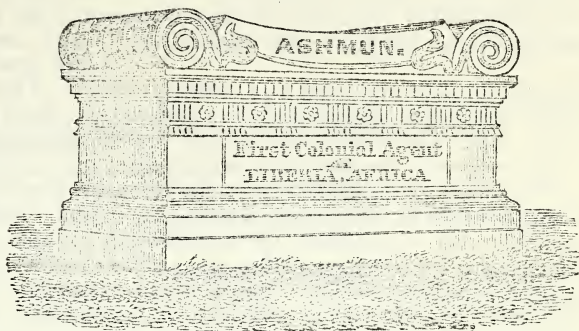 ASHMUN.
First Colonial Agent
AT
LIBERIA, AFRICA